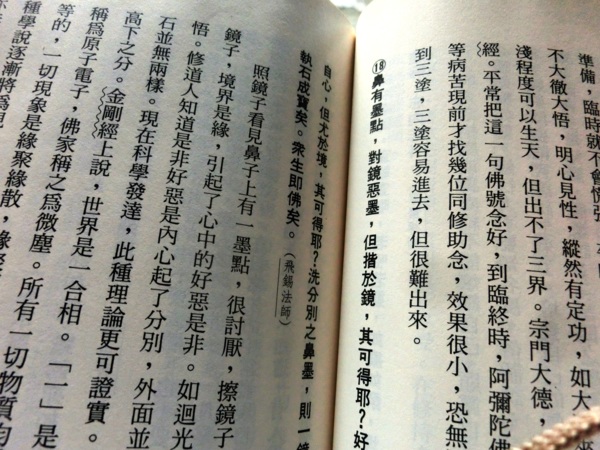 準備，臨時就不會慌張
不大徹大悟，明心見性，縱然有定功，如大
淺程度可以生天，但出不了三界。宗門大德，
經。平常把這一句佛號念好，到臨終時，阿彌陀佛
等病苦現前才找幾位同修助念，效果很小，恐無
到三塗，三塗容易進去，但很難出來。
⑱鼻有墨點，對鏡惡墨，但揩於鏡，其可得耶？好
自心，但尤於境，其可得耶？洗分別之鼻墨，則一鏡
執石成寶矣。衆生即佛矣。（飛錫法師）
照鏡子看見鼻子上有一墨點，很討厭，擦鏡子
鏡子，境界是緣，引起了心中的好惡是非。如迴光
悟。修道人知道是非好惡是內心起了分別，外面並
石並無兩樣。現在科學發達，此種理論更可證實。
高下之分。金剛經上說，世界是一合相。「一」是
稱爲原子電子，佛家稱之爲微塵。所有一切物質均
等的，一切現象是緣聚緣散，緣聚
種學說逐漸將爲